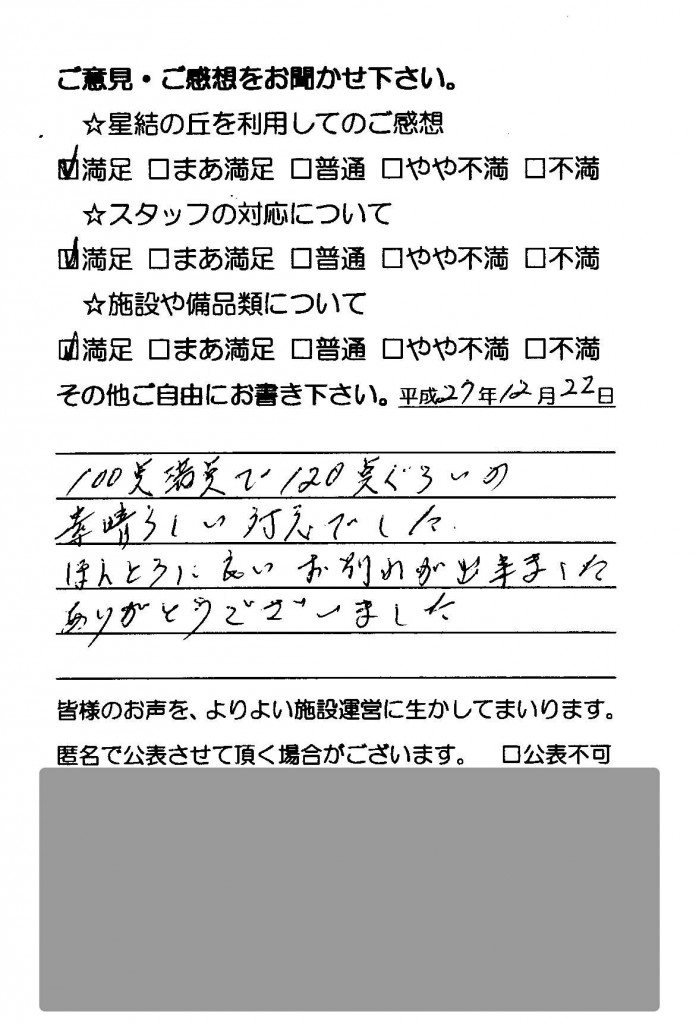 ご意見・ご感想をお聞かせ下さい。
☆星結の丘を利用してのご感想
☑満足 □まあ満足 □普通 □やや不満 □不満
☆スタッフの対応について
☑満足 □まあ満足 □普通 □やや不満 □不満
☆施設や備品類について
☑満足 □まあ満足 □普通 □やや不満 □不満
その他ご自由にお書き下さい。平成27年12月22日
100点満点で120点ぐらいの
素晴らしい対応でした
ほんとうに良いお別れが出来ました
ありがとうございました
皆様のお声を、よりよい施設運営に生かしてまいります。
匿名で公表させて頂く場合がございます。 □公表不可